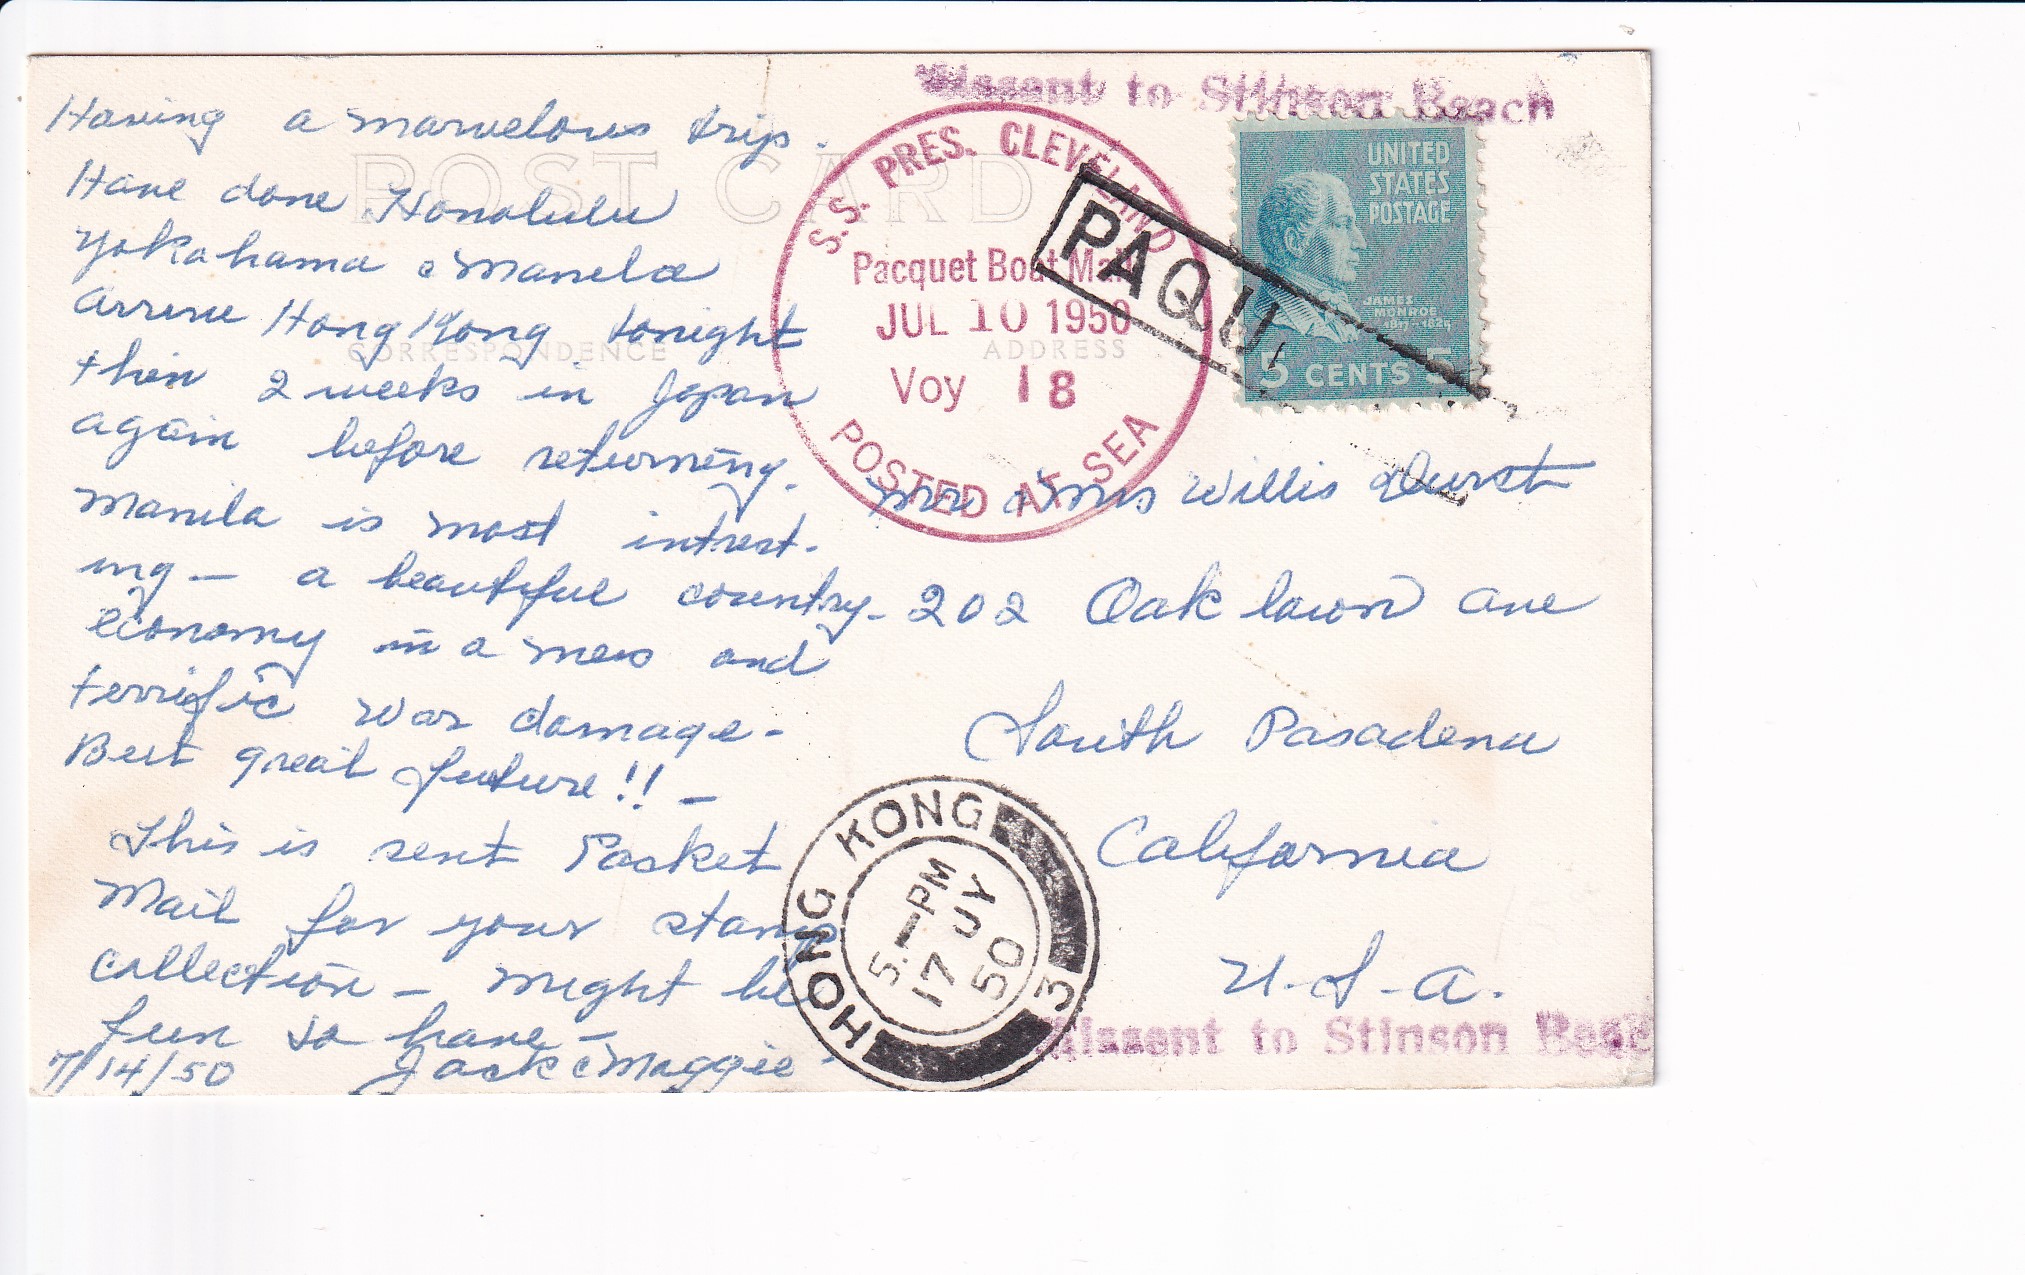 Having a marvelous trip.
Have done Honolulu
Yokahama & Manila
arrive Hong Kong tonight
then 2 weeks in Japan
again before returning.
Manila is most intrest-
ing — a beautiful country-
economy in a mess and
terrific war damage-
But great future!! —
This is sent Packet
Mail for your stamp
collection — might be
fun to have —
Jack & Maggie
7/14/50
POST CARD
CORRESPONDENCE
ADDRESS
Missent to Stinson Beach
S.S. PRES. CLEVELAND
Pacquet Boat Mail
JUL 10 1950
Voy 18
POSTED AT SEA
PAQU
UNITED
STATES
POSTAGE
JAMES
MONROE
1817-1824
5 CENTS 5
Mr & Mrs Willis Durst
202 Oak lawn Ave
South Pasadena
California
U.S.A.
HONG KONG
5.-PM
17 JY
50
3
Missent to Stinson Beac